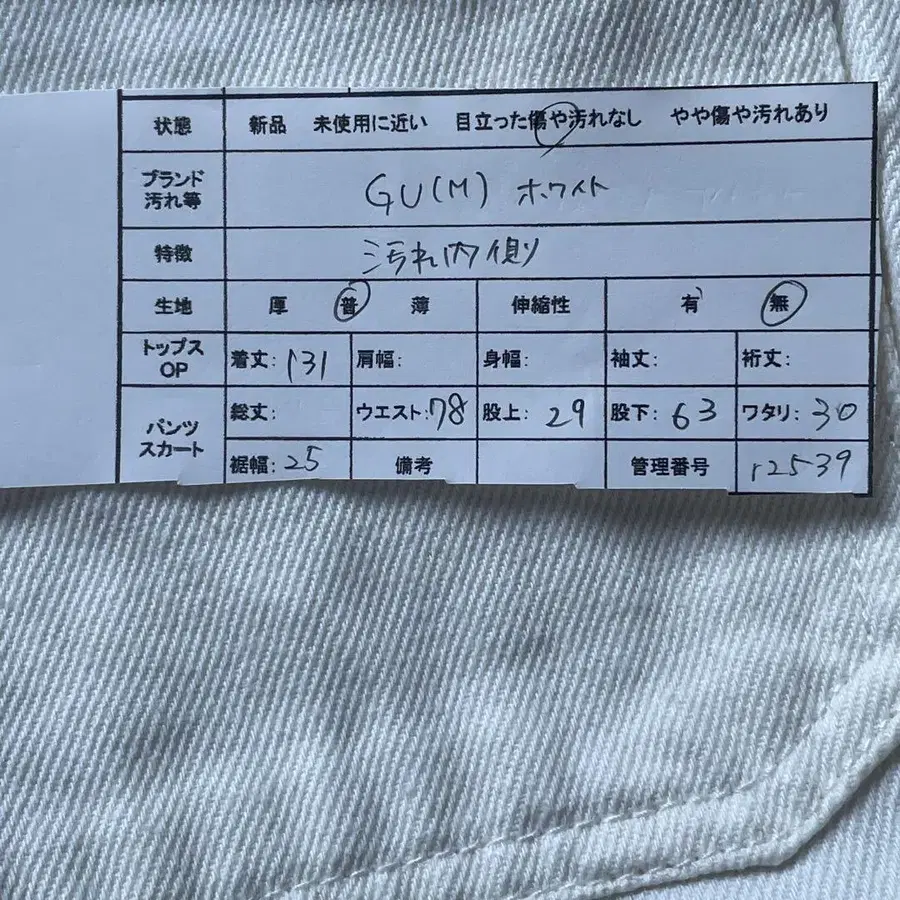 状態 新品 未使用に近い 目立った傷や汚れなし やや傷や汚れあり
ブランド 汚れ等 GU(M) ホワイト
特徴 汚れ内側
生地 厚 普 薄 伸縮性 有 無
トップス OP 着丈: 131 肩幅: 身幅: 袖丈: 裄丈:
パンツ スカート 総丈: ウエスト: 78 股上: 29 股下: 63 ワタリ: 30
裾幅: 25 備考 管理番号 r2539